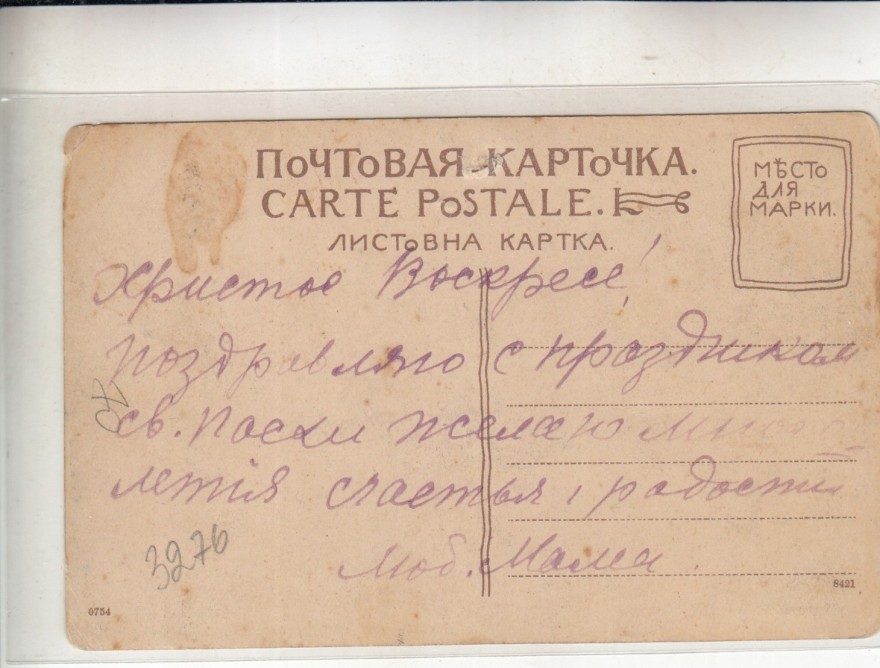 ПОЧТОВАЯ КАРТОЧКА.
CARTE POSTALE.
ЛИСТОВНА КАРТКА.
МѢСТО
ДЛЯ
МАРКИ.
Христос Воскресе!
поздравляю с праздником
св. пасхи желаю много
летія счастья, радости
Люб. Мама.
3276
0754
8421